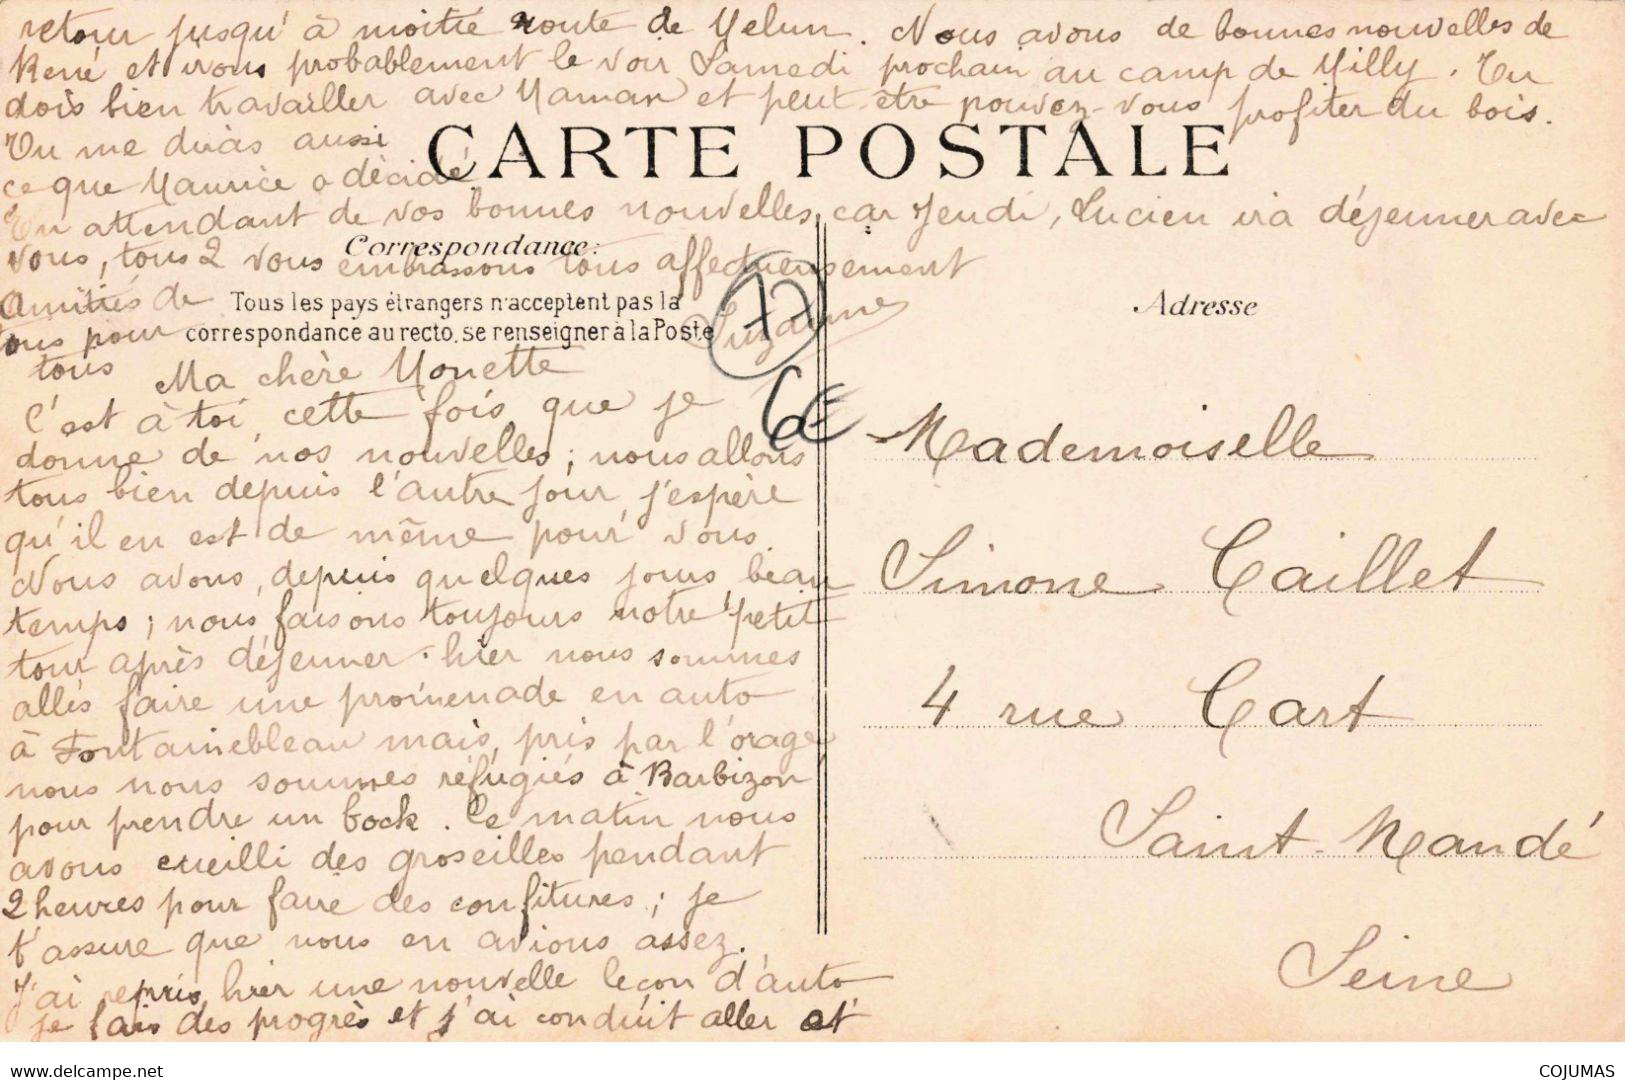 retour jusqu'à moitié route de Melun. Nous avons de bonnes nouvelles de
René et irons probablement le voir Samedi prochain au camp de Milly. Tu
dois bien travailler avec Maman et peut-être pouvez-vous profiter du bois.
Tu me diras aussi
ce que Maurice a décidé.
CARTE POSTALE
En attendant de vos bonnes nouvelles, car Jeudi, Lucien ira déjeuner avec
vous, tous 2 vous embrassons tous affectueusement
Correspondance:
Amitiés de
tous pour
tous
Suzanne
Tous les pays étrangers n'acceptent pas la
correspondance au recto, se renseigner à la Poste
77
6€
Ma chère Monette
C'est à toi, cette fois que je
donne de nos nouvelles; nous allons
tous bien depuis l'autre jour, j'espère
qu'il en est de même pour vous.
Nous avons, depuis quelques jours, beau
temps; nous faisons toujours notre petit
tour après déjeuner. hier nous sommes
allés faire une promenade en auto
à Fontainebleau mais, pris par l'orage,
nous nous sommes réfugiés à Barbizon
pour prendre un bock. Ce matin nous
avons cueilli des groseilles pendant
2 heures pour faire des confitures; je
t'assure que nous en avions assez.
J'ai repris hier une nouvelle leçon d'auto
je fais des progrès et j'ai conduit aller et
Adresse
Mademoiselle
Simone Caillet
4 rue Cart
Saint-Mandé
Seine
delcampe.net
COJUMAS